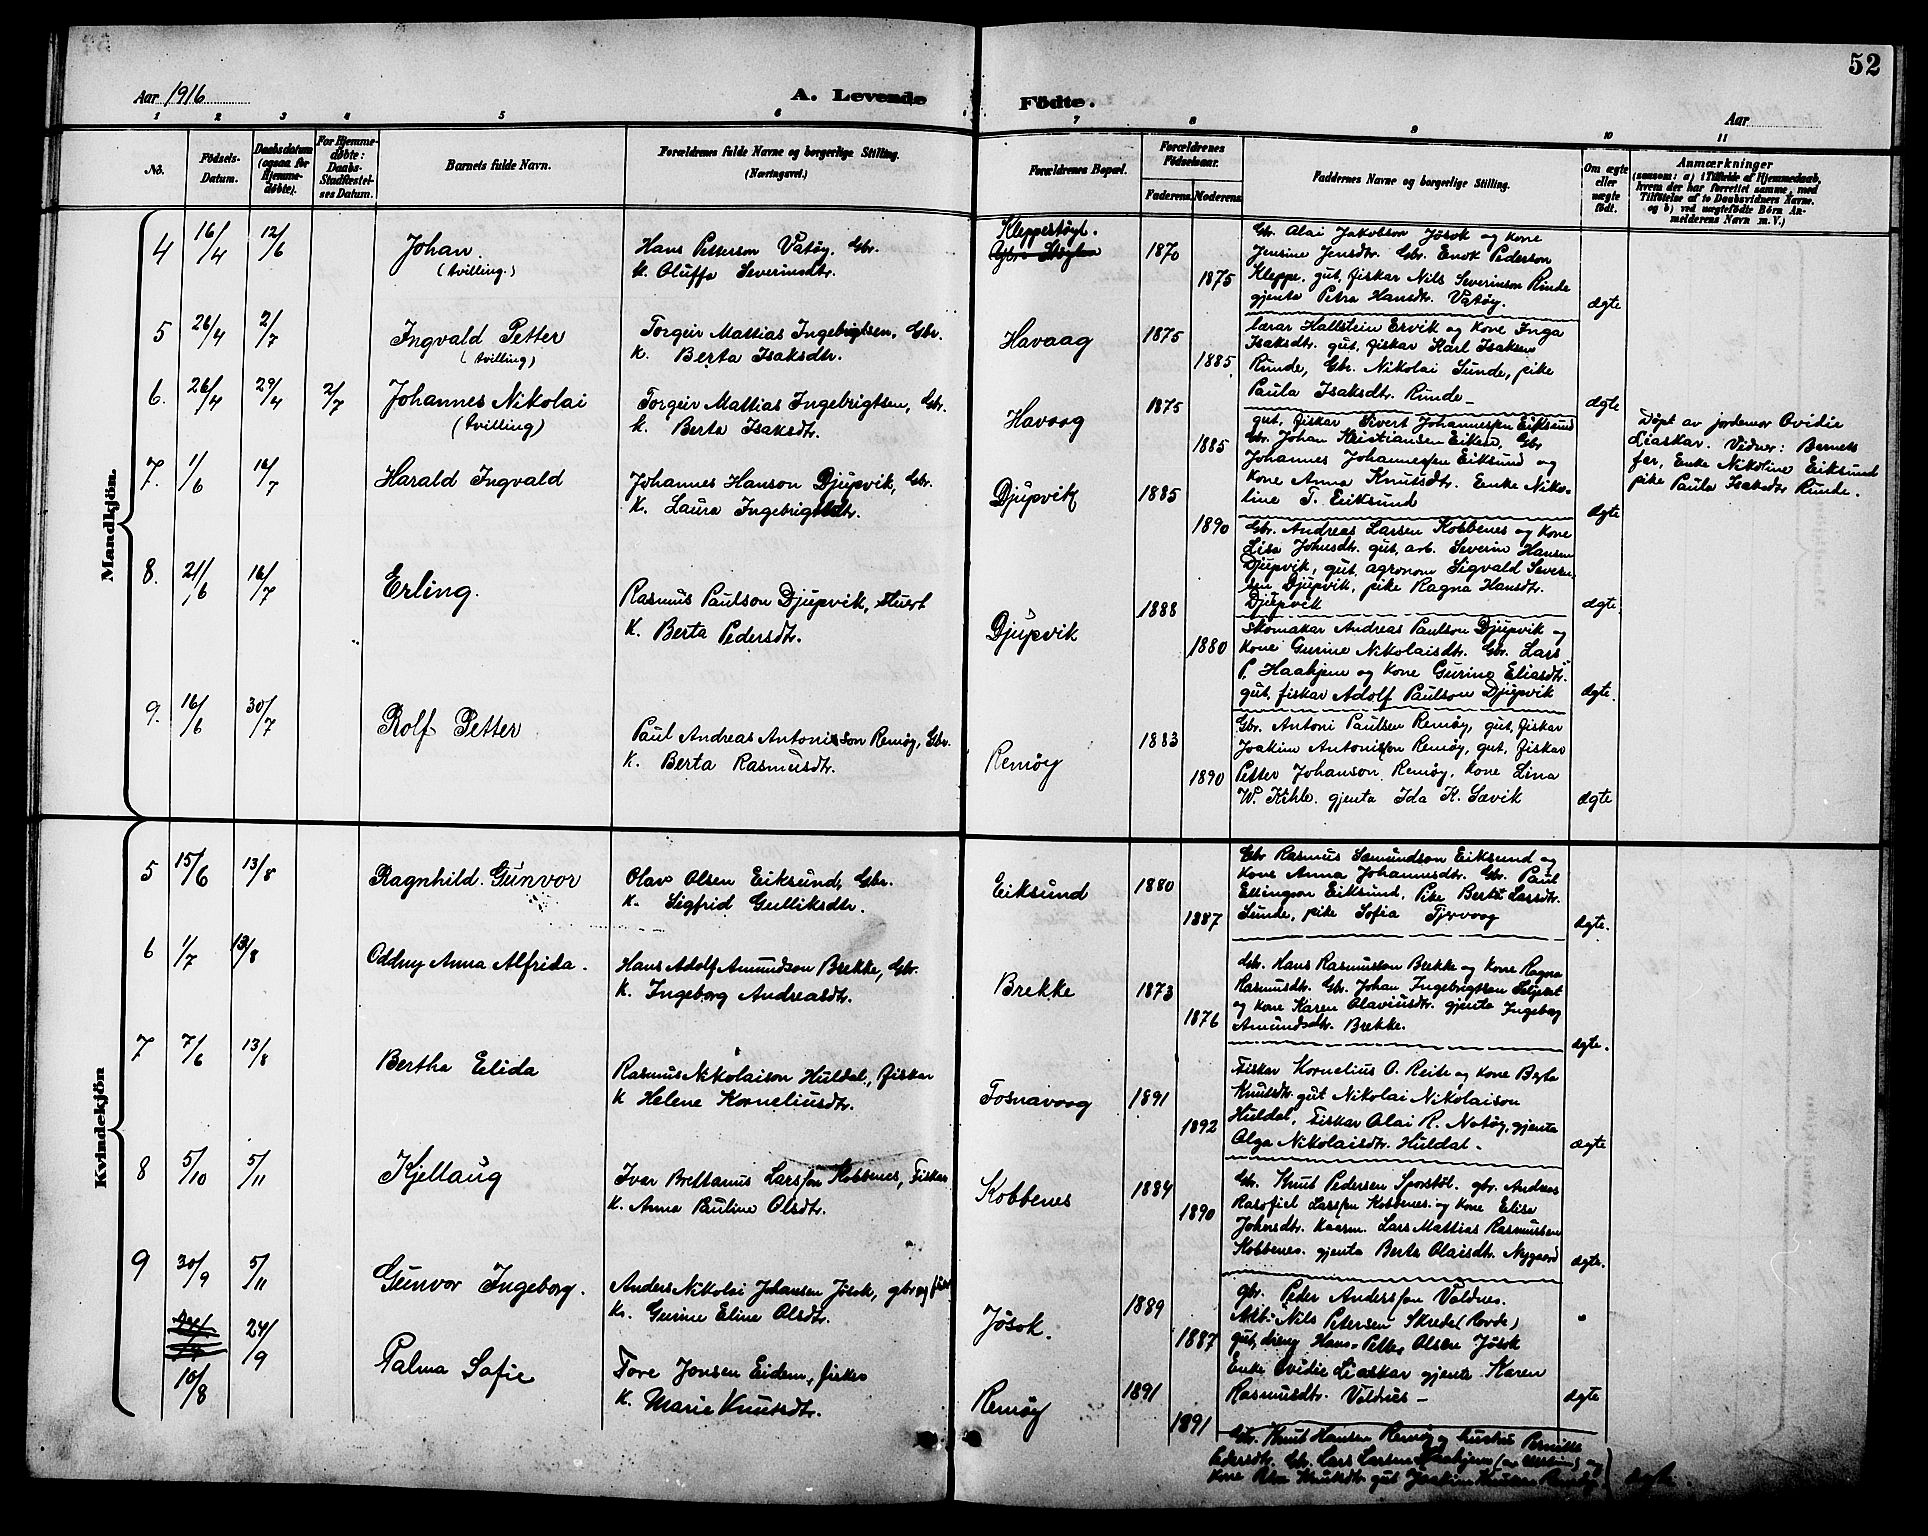 52
Aar 1916
A. Levende Födte.
Aar
1 2 3 4 5 6 7 8 9 10 11
No.
Födsels-Datum.
Daabsdatum (ogsaa for Hjemmedöbte).
For Hjemmedöbte: Daabs-Stadfæstelses Datum.
Barnets fulde Navn.
Forældrenes fulde Navne og borgerlige Stilling. (Næringsvei.)
Forældrenes Bopæl.
Forældrenes Födselsaar.
Faderens. Moderens.
Faddernes Navne og borgerlige Stilling.
Om ægte eller uægte födt.
Anmærkninger
(saasom: a) i Tilfælde af Hjemmedaab, hvem der har forrettet samme, med Tilföielse af to Daabsvidners Navne, og b) ved uægtefödte Börn Anmelderens Navn m. V.)
Mandkjön.
4 16/4 12/6 Johan (tvilling.)
Hans Petterson Vatöy. Gbr.
K. Oluffa Severinsdtr.
Kleppestöyl.
1870 1875
Gbr. Alai Jakobson Jösok og kone
Jensine Jensdtr. Gbr. Enok Pederson
Kleppe. gut, fiskar Nils Severinson Runde
gjenta Petra Hansdtr. Vatöy.
ægte
5 26/4 2/7 Ingvald Petter (tvilling)
Torgeir Mattias Ingebrigtsen, Gbr.
K. Berta Isaksdtr.
Havaag
1875 1885
lærar Hallstein Ervik og kone Inga
Isaksdtr. gut, fiskar Karl Isaksen
Runde, Gbr. Nikolai Sunde, pike
Paula Isaksdtr. Runde
ægte
6. 26/4 29/4 2/7 Johannes Nikolai (tvilling)
Torgeir Mattias Ingebrigtsen, Gbr.
K. Berta Isaksdtr.
Havaag
1875 1885
gut, fiskar Sivert Johannessen Eiksund
Gbr. Johan Kristiansen Eiken, Gbr
Johannes Johannessen Eiksund og
kone Anna Knutsdtr. Enke Niko-
line T. Eiksund
ægte
Döpt av jordemor Ovidie
Liaskar. Vidner: Barnets
far, Enke Nikoline Eiksund
pike Paula Isaksdtr Runde.
7. 1/6 16/7 Harald Ingvald
Johannes Hanson Djupvik, Gbr.
K. Laura Ingebrigtsdtr.
Djupvik
1885 1890
Gbr. Andreas Larsen Kobbenes og kone
Lisa Johnsdtr. gut, arb. Severin Hansen
Djupvik, gut, agronom Sigvald Severin-
sen Djupvik, pike Ragna Hansdtr.
Djupvik
ægte
8. 21/6 16/7 Erling.
Rasmus Paulson Djupvik,
K. Berta Pedersdtr.
Djupvik
1888 1880
Skomakar Andreas Paulson Djupvik og
kone Gurine Nikolaisdtr. Gbr. Lars
P. Haahjem og kone Gurine Eliasdtr.
gut, fiskar Adolf Paulson Djupvik
ægte.
9. 16/6 30/7 Rolf Petter
Paul Andreas Antonisson Remöy, Gbr.
K. Berta Rasmusdtr.
Remöy
1883 1890
Gbr. Antoni Paulsen Remöy, gut, fiskar
Joakim Antonisson Remöy, gut, fiskar
Petter Johanson Remöy, kone Lina
W. Kihle. gjenta Ida K. Sævik
ægte
Kvindekjön
5 15/6 13/8 Ragnhild Gunvor
Olav Olsen Eiksund, Gbr.
K. Sigfrid Gulliksdtr.
Eiksund
1880 1887
Gbr Rasmus Samundson Eiksund og
kone Anna Johannesdtr. Gbr. Paul
Ellingson Eiksund, Pike Berta Larsdtr.
Sunde, pike Sofia Tjervaag
ægte.
6 1/7 13/8 Oddny Anna Alfrida.
Hans Adolf Amundson Brekke, Gbr.
K. Ingeborg Andreasdtr.
Brekke
1873 1876
Gbr. Hans Rasmusson Brekke og kone Ragna
Rasmusdtr. Gbr. Johan Ingebrigtson
og kone Karen Olaviusdtr. gjenta Ingeborg
Amundsdtr. Brekke.
ægte.
7 7/6 13/8 Bertha Elida
Rasmus Nikolaison Huldal, fiskar
K Helene Korneliusdtr.
Fosnavaag
1891 1892
Fiskar Kornelius O. Reite og kone Berta
Knutsdtr. gut Nikolai Nikolaison
Huldal, Fiskar Alai R. Notöy, gjenta
Olga Nikolaisdtr. Huldal.
ægte
8 5/10 5/11 Kjellaug
Ivar Brettanus Larssen Kobbenes, Fiskar
K. Anna Pauline Olsdtr.
Kobbenes
1884 1890
Gbr. Knut Pedersen Sporstöl. gbr. Andreas
Larssen Kobbenes og kone Elisa
Johnsdtr. Lars Mattias Rasmussen
Kobbenes. gjenta Berte Olaisdtr. Nygaard
ægte.
9 30/9 5/11 Gunvor Ingeborg.
Anders Nikolai Johansen Jösok, gbr og
K. Gurine Eline Olsdtr.
Jösok.
1889 1887
gbr. Peder Anderssen Voldnes.
Arb. Nils Petersen Skrede (Rovde)
gut, dreng Hans Petter Olsen Jösok
Enke Ovidie Liaskar gjente Karen
Rasmusdtr. Voldnes
"
10/8 24/9 Palma Sofie
Tore Jonsen Eidem, fisker
K. Marie Knutsdtr.
Remöy
1891 1891
ægte
Gbr. Knut Hansen Remöy og hustru Pernille
Pedersdtr. Gbr. Lars Larsen Haahjem og
kone Knutsdtr. gut Joakim Knutsen Remöy
ægte.